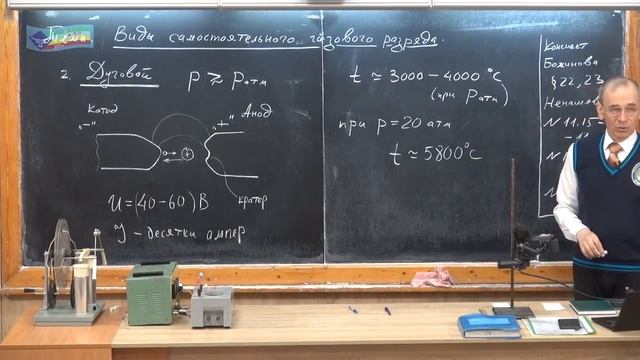 Тема
Виды самостоятельного газового разряда.
2. Дуговой
P ⪆ Pатм
Катод
"–"
"+"
Анод
+
кратер
U = (40 – 60) В
J – десятки ампер
t ≃ 3000 – 4000 °C
(при Pатм)
при p = 20 атм
t ≈ 5800°C
Конспект
Божинова
§ 22, 23
N 11.15 –
N